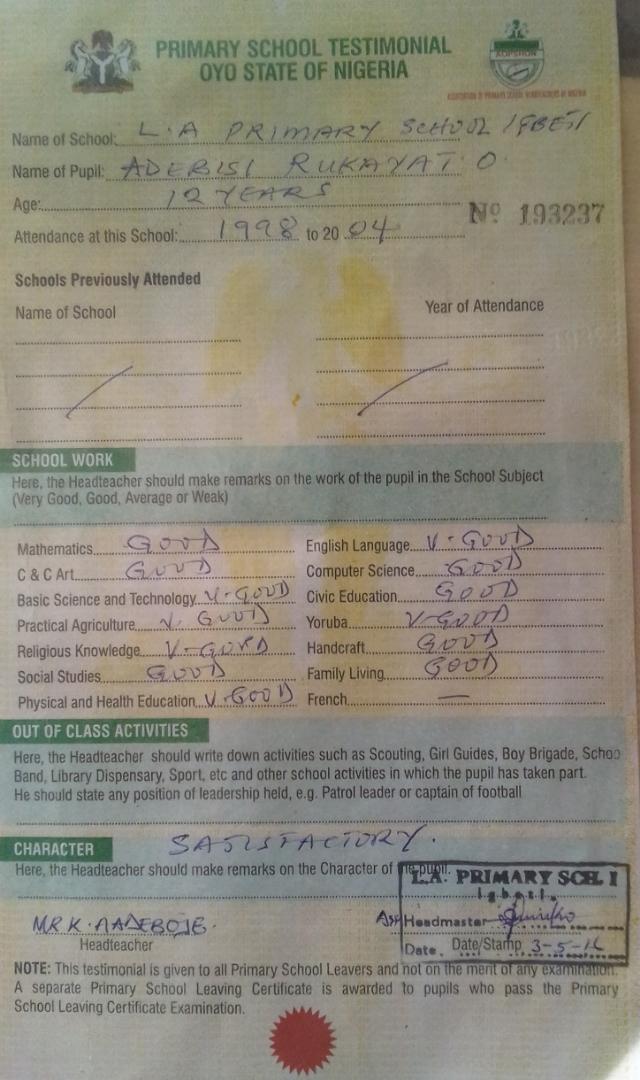 PRIMARY SCHOOL TESTIMONIAL
OYO STATE OF NIGERIA
AOPSHON
Name of School: L.A PRIMARY SCHOOL IGBETI
Name of Pupil: ADEBISI RUKAYAT O.
Age: 12 YEARS
No 193237
Attendance at this School: 1998 to 2004
Schools Previously Attended
Name of School Year of Attendance
SCHOOL WORK
Here, the Headteacher should make remarks on the work of the pupil in the School Subject
(Very Good, Good, Average or Weak)
Mathematics GOOD English Language V. GOOD
C & C Art GOOD Computer Science GOOD
Basic Science and Technology V. GOOD Civic Education GOOD
Practical Agriculture V. GOOD Yoruba V-GOOD
Religious Knowledge V-GOOD Handcraft GOOD
Social Studies GOOD Family Living GOOD
Physical and Health Education V.GOOD French —
OUT OF CLASS ACTIVITIES
Here, the Headteacher should write down activities such as Scouting, Girl Guides, Boy Brigade, Schoo
Band, Library Dispensary, Sport, etc and other school activities in which the pupil has taken part.
He should state any position of leadership held, e.g. Patrol leader or captain of football
CHARACTER SATISFACTORY.
Here, the Headteacher should make remarks on the Character of the pupil.
L.A. PRIMARY SCH. I
Igbeti.
MR K. A ADEBOJE. Headmaster
Headteacher
Date. Date/Stamp 3-5-16
NOTE: This testimonial is given to all Primary School Leavers and not on the merit of any examination.
A separate Primary School Leaving Certificate is awarded to pupils who pass the Primary
School Leaving Certificate Examination.